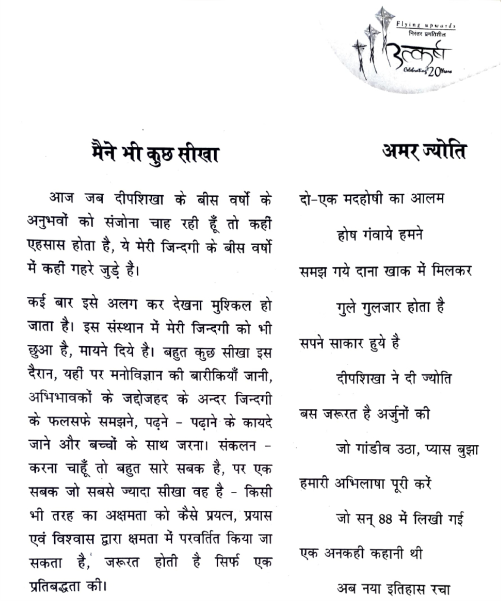 Flying upwards
निरंतर प्रगतिशील
उत्कर्ष
Celebrating 20 Years
मैने भी कुछ सीखा
आज जब दीपशिखा के बीस वर्षो के
अनुभवों को संजोना चाह रही हूँ तो कहीं
एहसास होता है, ये मेरी जिन्दगी के बीस वर्षो
में कहीं गहरे जुड़े है।
कई बार इसे अलग कर देखना मुश्किल हो
जाता है। इस संस्थान में मेरी जिन्दगी को भी
छुआ है, मायने दिये है। बहुत कुछ सीखा इस
दैरान, यही पर मनोविज्ञान की बारीकियाँ जानी,
अभिभावकों के जद्दोजहद के अन्दर जिन्दगी
के फलसफे समझने, पढ़ने - पढ़ाने के कायदे
जाने और बच्चों के साथ जरना। संकलन -
करना चाहूँ तो बहुत सारे सबक है, पर एक
सबक जो सबसे ज्यादा सीखा वह है - किसी
भी तरह का अक्षमता को कैसे प्रयत्न, प्रयास
एवं विश्वास द्वारा क्षमता में परवर्तित किया जा
सकता है, जरूरत होती है सिर्फ एक
प्रतिबद्धता की।
अमर ज्योति
दो-एक मदहोषी का आलम
होष गंवाये हमने
समझ गये दाना खाक में मिलकर
गुले गुलजार होता है
सपने साकार हुये है
दीपशिखा ने दी ज्योति
बस जरूरत है अर्जुनों की
जो गांडीव उठा, प्यास बुझा
हमारी अभिलाषा पूरी करें
जो सन् 88 में लिखी गई
एक अनकही कहानी थी
अब नया इतिहास रचा